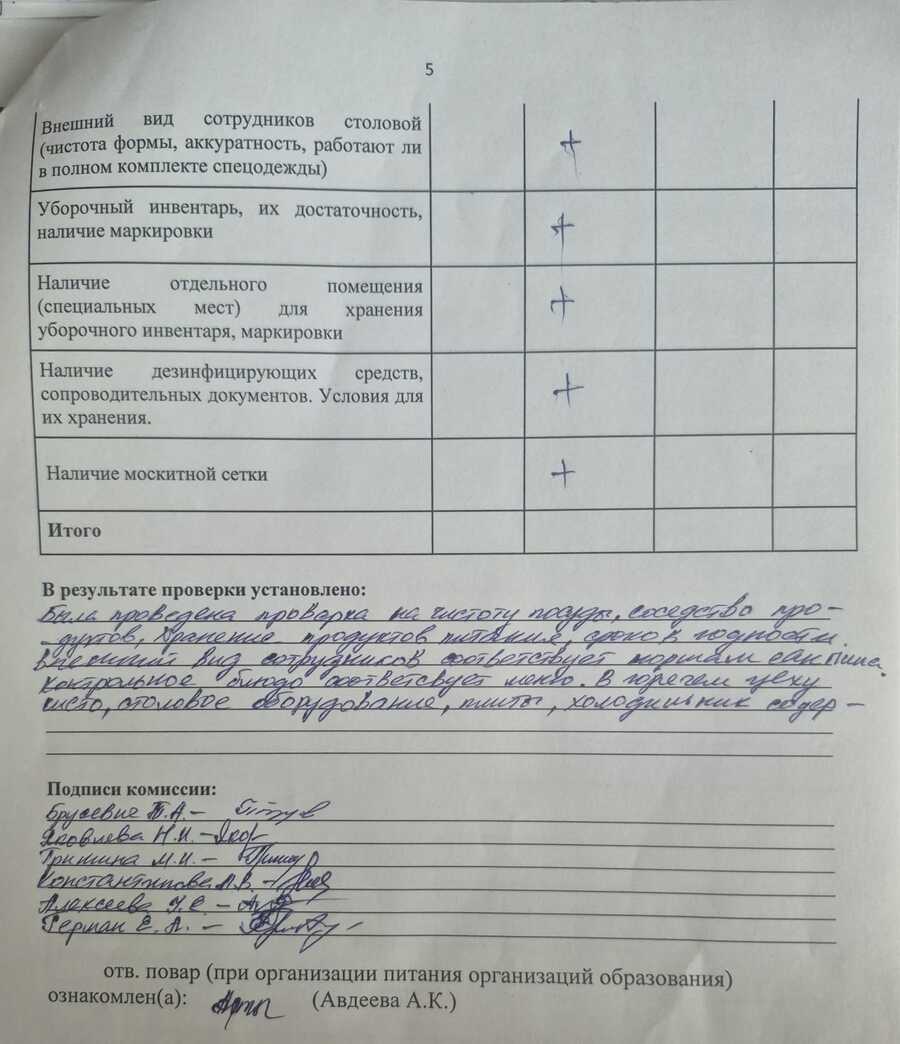 5
Внешний вид сотрудников столовой
(чистота формы, аккуратность, работают ли
в полном комплекте спецодежды)
+
Уборочный инвентарь, их достаточность,
наличие маркировки
+
Наличие отдельного помещения
(специальных мест) для хранения
уборочного инвентаря, маркировки
+
Наличие дезинфицирующих средств,
сопроводительных документов. Условия для
их хранения.
+
Наличие москитной сетки
+
Итого
В результате проверки установлено:
Была проведена проверка на чистоту посуды, соседство про-
дуктов, хранение продуктов питания, сроков годности.
Внешний вид сотрудников соответствует нормам санПина.
Контрольное блюдо соответсвует меню. В горячем цеху
чисто, столовое оборудование, плиты, холодильник содер-
Подписи комиссии:
Т.А. -
Яковлева Н.И. -
Гришина М.И. -
Константинова -
Алексеева -
Герман Е.А. -
отв. повар (при организации питания организаций образования)
ознакомлен(а): (Авдеева А.К.)